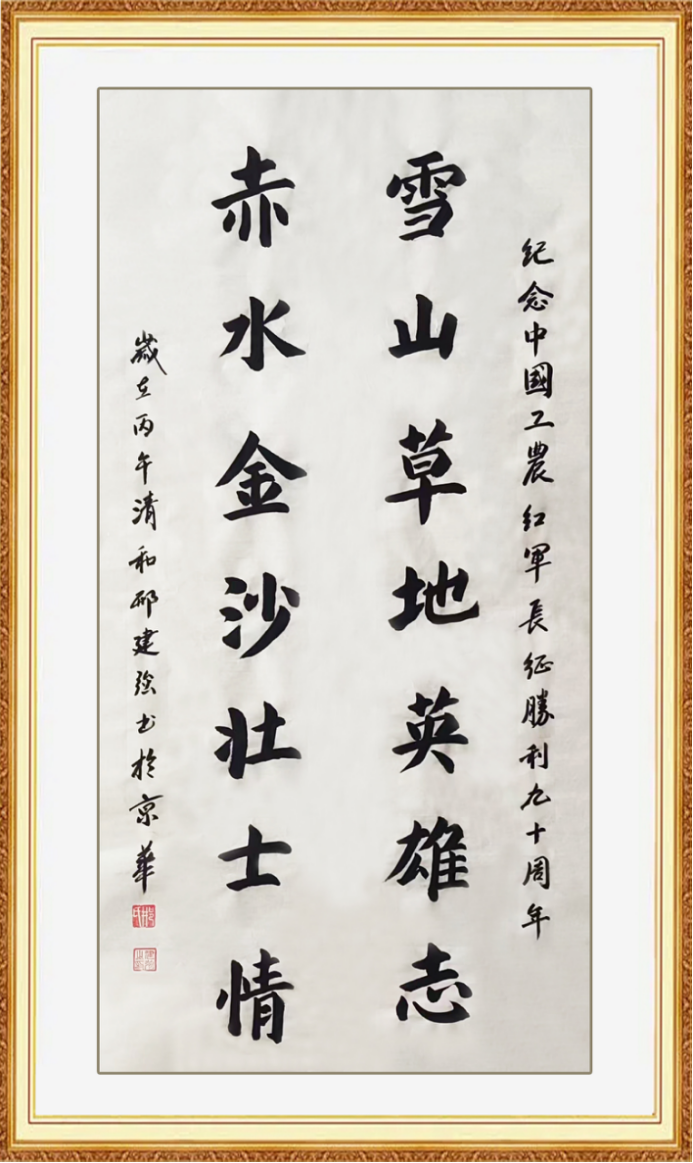 紀念中國工農紅軍長征勝利九十周年
雪山草地英雄志
赤水金沙壮士情
歲在丙午清和邢建强书於京華